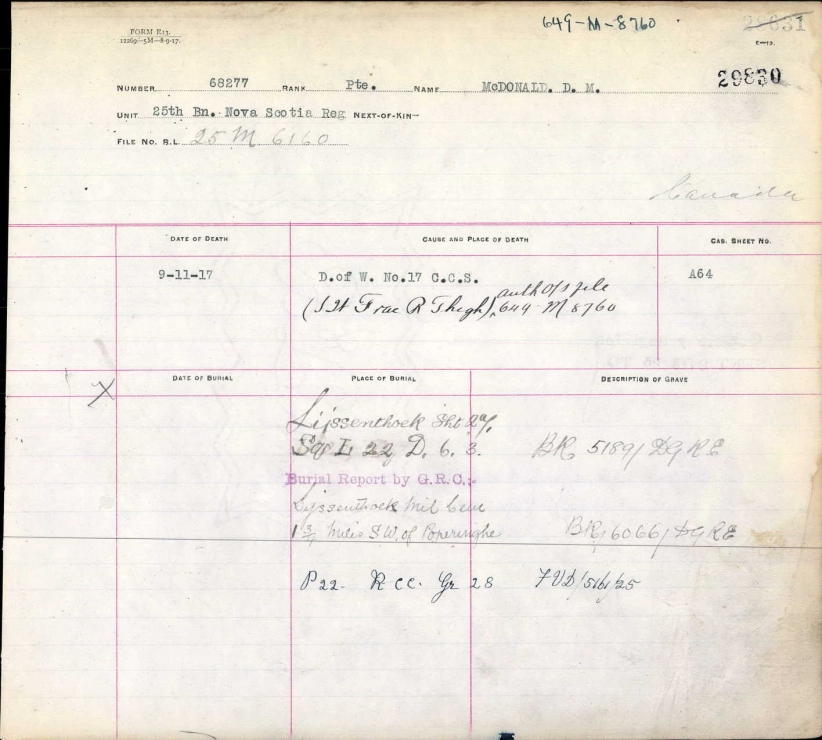 649-M-8760
FORM E13.
12269-5M-8-9-17.
E-13.
29830
NUMBER 68277 RANK Pte. NAME McDONALD. D. M.
UNIT 25th Bn. Nova Scotia Reg NEXT-OF-KIN—
FILE No. B.L. 25 M 6160
Canada
DATE OF DEATH CAUSE AND PLACE OF DEATH CAS. SHEET NO.
9-11-17 D.of W. No.17 C.C.S. A64
auth O/S file
Frac R Thigh), 649-M 8760
DATE OF BURIAL PLACE OF BURIAL DESCRIPTION OF GRAVE
X
Lijssenthoek Sht 27.
Sq L 22 D. 6. 3. BR 5189/DGRE
Burial Report by G.R.C:-
Lijssenthoek Mil Cem
1 3/4 miles S.W. of Poperinghe BR/6066/DGRE
P22. R CC. Gr 28